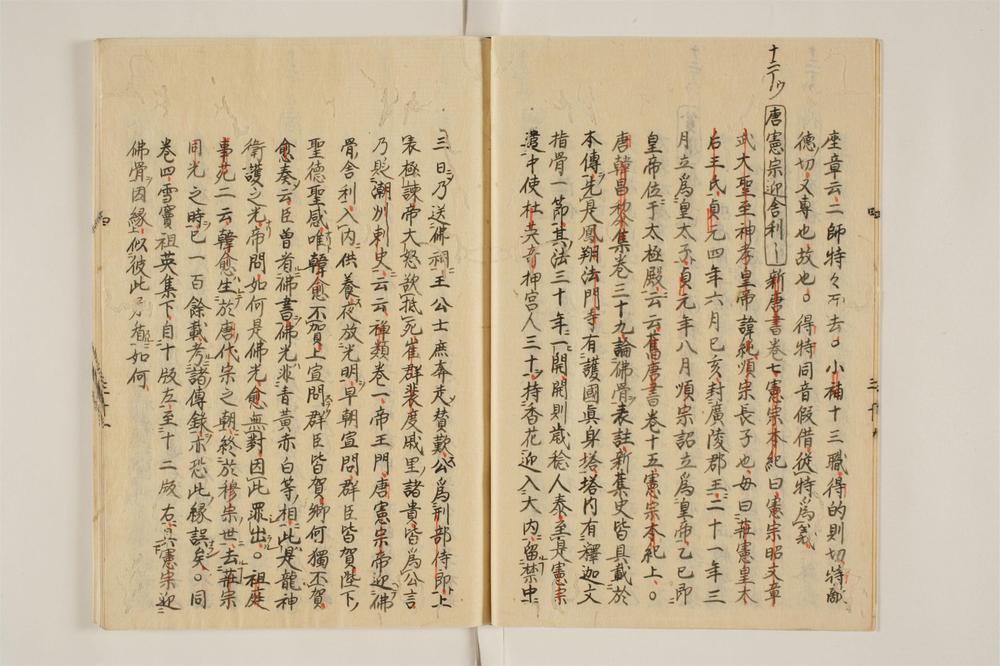 座章云二師特々不去。小補十三職得的則切特敵
德切又專也故也。得特同音假借從特為義
十二丁ウ
唐憲宗迎舍利〻新唐書卷七憲宗本紀曰憲宗昭文章
武大聖至神孝皇帝諱純順宗長子也母曰莊憲皇太
后王氏貞元四年六月己亥封廣陵郡王二十一年三
月立為皇太子貞元年八月順宗詔立為皇帝乙巳即
皇帝位于太極殿云云舊唐書卷十五憲宗本紀上。
唐韓昌黎集卷三十九論佛骨表註新舊史皆具載於
本傳先是鳳翔法門寺有護國眞身塔塔內有釋迦文
指骨一節其法三十年一開開則歲稔人泰至是憲宗
遣中使杜英奇押宮人三十持香花迎入大內留禁中
三日乃送佛祠王公士庶奔走賛歎公爲刑部侍郎上
表極諫帝大怒欲抵死崔群裴度戚里諸貴皆爲公言
乃貶潮州刺史云云禪類卷一帝王門唐憲宗帝迎佛
骨舍利入內供養夜放光明早朝宣問群臣皆賀陛下
聖德聖感唯韓愈不賀上宣問群臣皆賀卿何獨不賀
愈奏云臣曽看佛書佛光非青黃赤白等相此是龍神
衛護之光帝問如何是佛光愈無對因此罪出。祖庭
事苑二云韓愈生於唐代宗之朝終於穆宗世去莊宗
同光之時巳一百餘載考諸傳錄亦恐此緣誤矣。同
卷四雪竇祖英集下自十版左至十二版右云憲宗迎
佛骨因緣似彼此如何